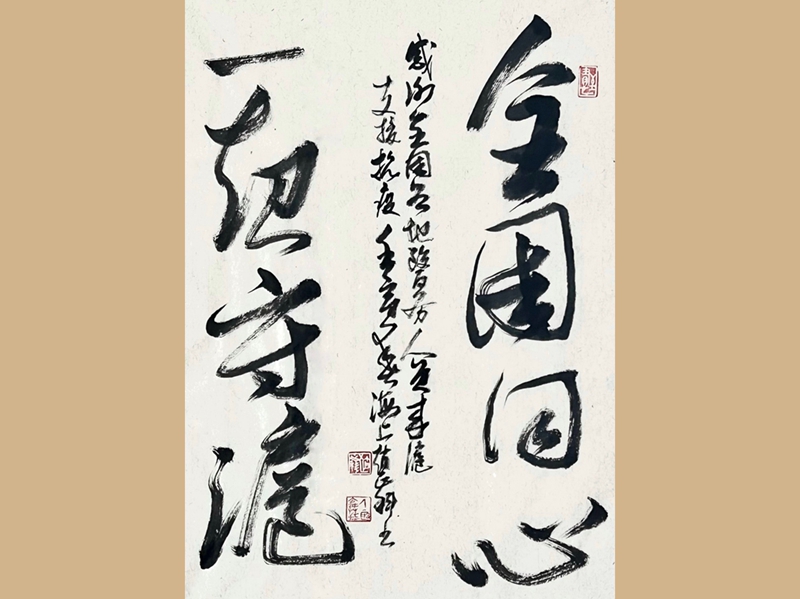 全国同心
感谢全国各地医务人员来沪
支援抗疫 壬寅春 海上 书
一起守沪